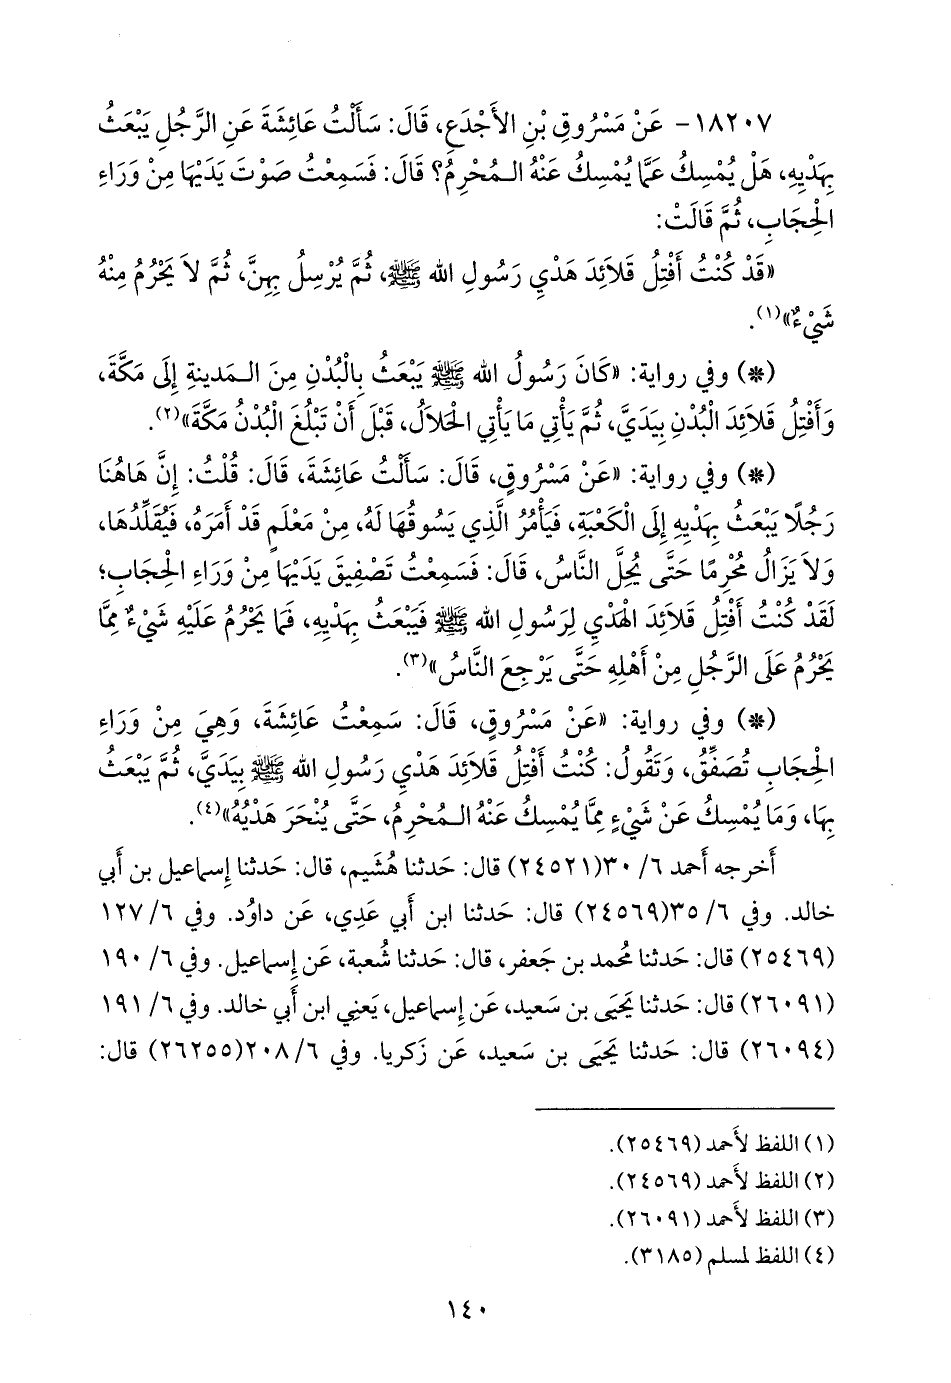 ١٨٢٠٧- عَنْ مَسْرُوقِ بْنِ الأَجْدَعِ، قَالَ: سَأَلْتُ عَائِشَةَ عَنِ الرَّجُلِ يَبْعَثُ
بِهَدْيِهِ، هَلْ يُمْسِكُ عَمَّا يُمْسِكُ عَنْهُ الـمُحْرِمُ؟ قَالَ: فَسَمِعْتُ صَوْتَ يَدَيْهَا مِنْ وَرَاءِ
الْحِجَابِ، ثُمَّ قَالَتْ:
«قَدْ كُنْتُ أَفْتِلُ قَلاَئِدَ هَدْيِ رَسُولِ الله ﷺ، ثُمَّ يُرْسِلُ بِهِنَّ، ثُمَّ لاَ يَحْرُمُ مِنْهُ
شَيْءٌ»(١).
(*) وفي رواية: «كَانَ رَسُولُ الله ﷺ يَبْعَثُ بِالْبُدْنِ مِنَ الـمَدينةِ إِلَى مَكَّةَ،
وَأَفْتِلُ قَلاَئِدَ الْبُدْنِ بِيَدَيَّ، ثُمَّ يَأْتِي مَا يَأْتِي الْحَلاَلُ، قَبْلَ أَنْ تَبْلُغَ الْبُدْنُ مَكَّةَ»(٢).
(*) وفي رواية: «عَنْ مَسْرُوقٍ، قَالَ: سَأَلْتُ عَائِشَةَ، قَالَ: قُلْتُ: إِنَّ هَاهُنَا
رَجُلًا يَبْعَثُ بِهَدْيِهِ إِلَى الْكَعْبَةِ، فَيَأْمُرُ الَّذِي يَسُوقُهَا لَهُ، مِنْ مَعْلَمٍ قَدْ أَمَرَهُ، فَيُقَلِّدُهَا،
وَلاَ يَزَالُ مُحْرِمًا حَتَّى يُحِلَّ النَّاسُ، قَالَ: فَسَمِعْتُ تَصْفِيقَ يَدَيْهَا مِنْ وَرَاءِ الْحِجَابِ؛
لَقَدْ كُنْتُ أَفْتِلُ قَلاَئِدَ الْهَدْيِ لِرَسُولِ الله ﷺ فَيَبْعَثُ بِهَدْيِهِ، فَمَا يَحْرُمُ عَلَيْهِ شَيْءٌ مِمَّا
يَحْرُمُ عَلَى الرَّجُلِ مِنْ أَهْلِهِ حَتَّى يَرْجِعَ النَّاسُ»(٣).
(*) وفي رواية: «عَنْ مَسْرُوقٍ، قَالَ: سَمِعْتُ عَائِشَةَ، وَهِيَ مِنْ وَرَاءِ
الْحِجَابِ تُصَفِّقُ، وَتَقُولُ: كُنْتُ أَفْتِلُ قَلاَئِدَ هَدْيِ رَسُولِ الله ﷺ بِيَدَيَّ، ثُمَّ يَبْعَثُ
بِهَا، وَمَا يُمْسِكُ عَنْ شَيْءٍ مِمَّا يُمْسِكُ عَنْهُ الـمُحْرِمُ، حَتَّى يُنْحَرَ هَدْيُهُ»(٤).
أَخرجه أَحمد ٦/ ٣٠(٢٤٥٢١) قال: حَدثنا هُشَيم، قال: حَدثنا إِسماعيل بن أَبي
خالد. وفي ٦/ ٣٥(٢٤٥٦٩) قال: حَدثنا ابن أَبي عَدِي، عَن داوُد. وفي ٦/ ١٢٧
(٢٥٤٦٩) قال: حَدثنا مُحمد بن جَعفر، قال: حَدثنا شُعبة، عَن إِسماعيل. وفي ٦/ ١٩٠
(٢٦٠٩١) قال: حَدثنا يَحيَى بن سَعيد، عَن إِسماعيل، يَعني ابن أَبي خالد. وفي ٦/ ١٩١
(٢٦٠٩٤) قال: حَدثنا يَحيَى بن سَعيد، عَن زَكريا. وفي ٦/ ٢٠٨(٢٦٢٥٥) قال:
(١) اللفظ لأَحمد (٢٥٤٦٩).
(٢) اللفظ لأَحمد (٢٤٥٦٩).
(٣) اللفظ لأَحمد (٢٦٠٩١).
(٤) اللفظ لمسلم (٣١٨٥).
١٤٠